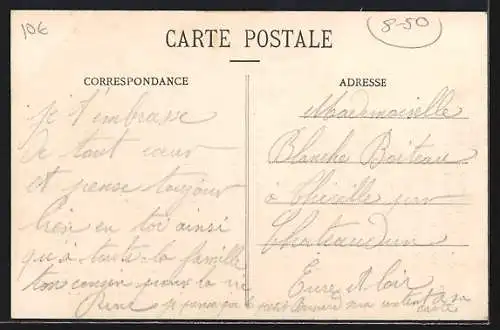 10€
8-50
CARTE POSTALE
CORRESPONDANCE
je t'embrasse
de tout cœur
et pense toujour
bien en toi ainsi
qu'à toute la famille
ton cousin pour la vie
René
ADRESSE
Mademoiselle
Blanche Boiteau
à Thiville par
Chateaudun
Eure et Loir
je pense que le petit sa
carte